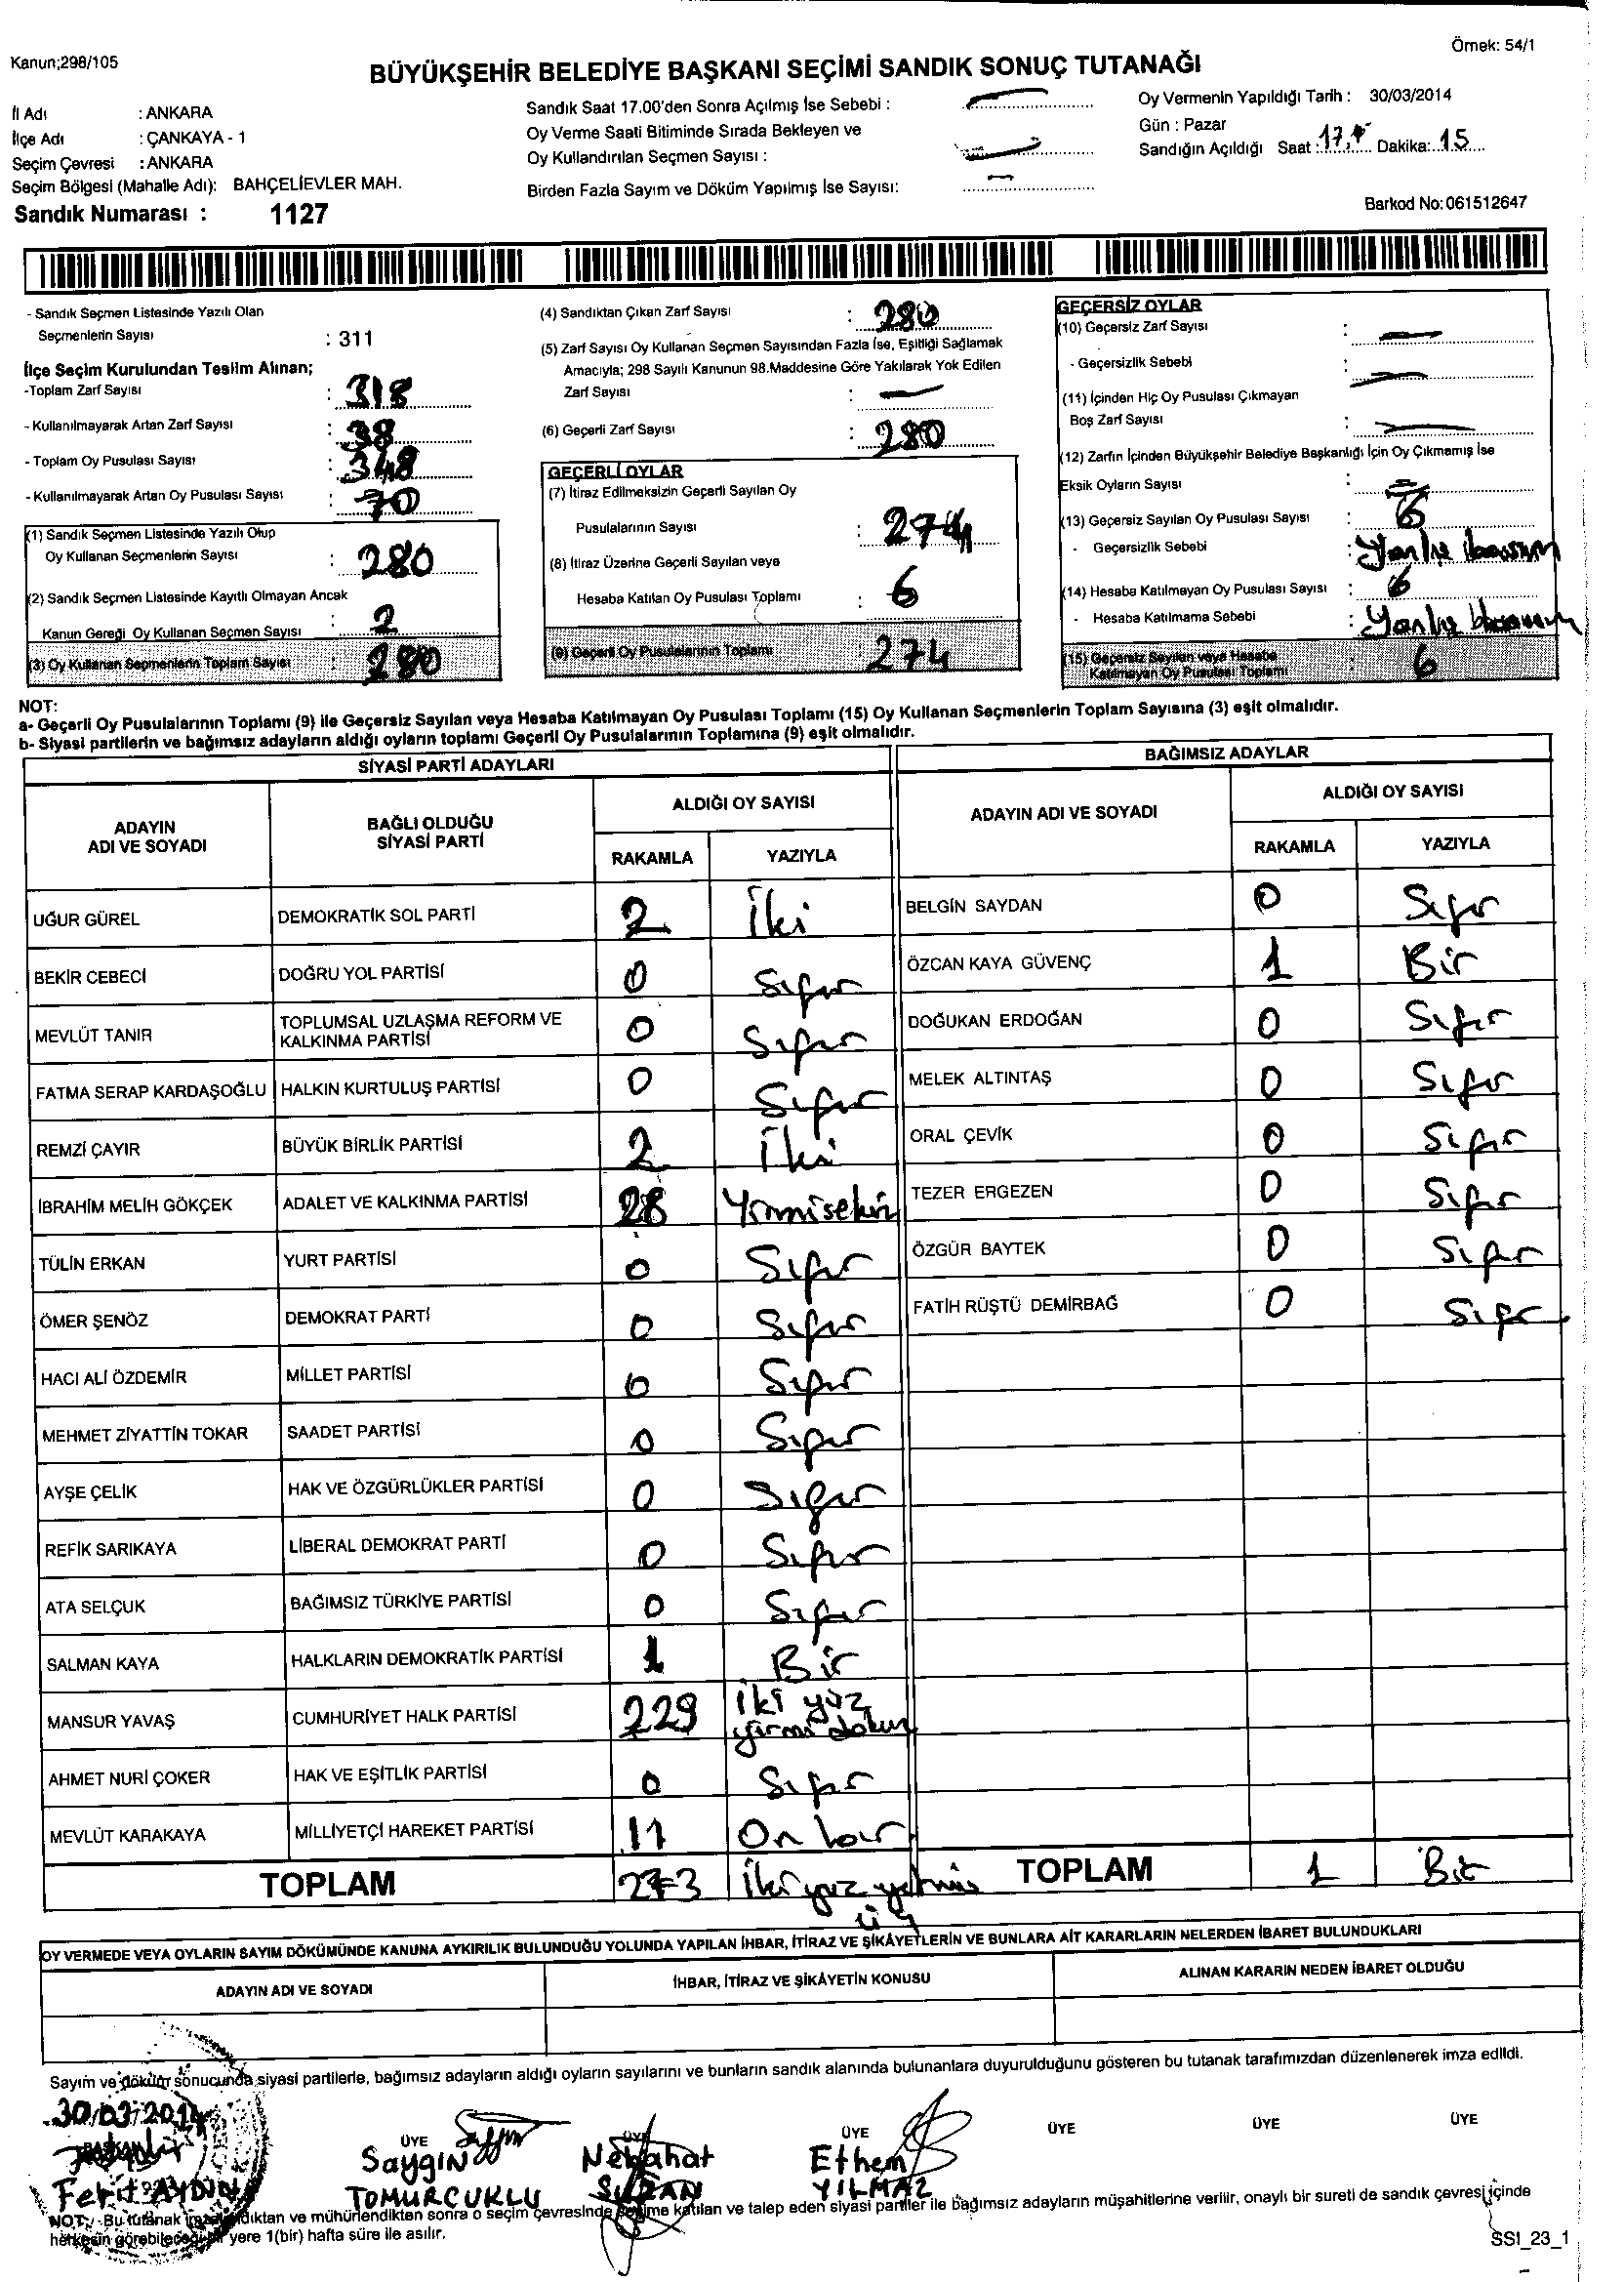 Örnek: 54/1
Kanun;298/105
BÜYÜKŞEHİR BELEDİYE BAŞKANI SEÇİMİ SANDIK SONUÇ TUTANAĞI
İl Adı : ANKARA
İlçe Adı : ÇANKAYA - 1
Seçim Çevresi : ANKARA
Seçim Bölgesi (Mahalle Adı): BAHÇELİEVLER MAH.
Sandık Numarası : 1127
Sandık Saat 17.00'den Sonra Açılmış İse Sebebi :
Oy Verme Saati Bitiminde Sırada Bekleyen ve
Oy Kullandırılan Seçmen Sayısı :
Birden Fazla Sayım ve Döküm Yapılmış İse Sayısı:
Oy Vermenin Yapıldığı Tarih : 30/03/2014
Gün : Pazar
Sandığın Açıldığı Saat : 17 Dakika: 15
Barkod No: 061512647
- Sandık Seçmen Listesinde Yazılı Olan
Seçmenlerin Sayısı : 311
İlçe Seçim Kurulundan Teslim Alınan;
-Toplam Zarf Sayısı : 318
- Kullanılmayarak Artan Zarf Sayısı : 38
- Toplam Oy Pusulası Sayısı : 348
- Kullanılmayarak Artan Oy Pusulası Sayısı : 70
(1) Sandık Seçmen Listesinde Yazılı Olup
Oy Kullanan Seçmenlerin Sayısı : 280
(2) Sandık Seçmen Listesinde Kayıtlı Olmayan Ancak
Kanun Gereği Oy Kullanan Seçmen Sayısı : 2
(3) Oy Kullanan Seçmenlerin Toplam Sayısı : 280
(4) Sandıktan Çıkan Zarf Sayısı : 280
(5) Zarf Sayısı Oy Kullanan Seçmen Sayısından Fazla İse, Eşitliği Sağlamak
Amacıyla; 298 Sayılı Kanunun 98.Maddesine Göre Yakılarak Yok Edilen
Zarf Sayısı : —
(6) Geçerli Zarf Sayısı : 280
GEÇERLİ OYLAR
(7) İtiraz Edilmeksizin Geçerli Sayılan Oy
Pusulalarının Sayısı : 274
(8) İtiraz Üzerine Geçerli Sayılan veya
Hesaba Katılan Oy Pusulası Toplamı : 6
(9) Geçerli Oy Pusulalarının Toplamı : 274
GEÇERSİZ OYLAR
(10) Geçersiz Zarf Sayısı : —
- Geçersizlik Sebebi : —
(11) İçinden Hiç Oy Pusulası Çıkmayan
Boş Zarf Sayısı : —
(12) Zarfın İçinden Büyükşehir Belediye Başkanlığı İçin Oy Çıkmamış İse
Eksik Oyların Sayısı :
(13) Geçersiz Sayılan Oy Pusulası Sayısı : 6
- Geçersizlik Sebebi :
(14) Hesaba Katılmayan Oy Pusulası Sayısı : 6
- Hesaba Katılmama Sebebi :
(15) Geçersiz Sayılan veya Hesaba
Katılmayan Oy Pusulası Toplamı : 6
NOT:
a- Geçerli Oy Pusulalarının Toplamı (9) ile Geçersiz Sayılan veya Hesaba Katılmayan Oy Pusulası Toplamı (15) Oy Kullanan Seçmenlerin Toplam Sayısına (3) eşit olmalıdır.
b- Siyasi partilerin ve bağımsız adayların aldığı oyların toplamı Geçerli Oy Pusulalarının Toplamına (9) eşit olmalıdır.
SİYASİ PARTİ ADAYLARI
ADAYIN ADI VE SOYADI BAĞLI OLDUĞU SİYASİ PARTİ ALDIĞI OY SAYISI
RAKAMLA YAZIYLA
UĞUR GÜREL DEMOKRATİK SOL PARTİ 2 İki
BEKİR CEBECİ DOĞRU YOL PARTİSİ 0 Sıfır
MEVLÜT TANIR TOPLUMSAL UZLAŞMA REFORM VE KALKINMA PARTİSİ 0 Sıfır
FATMA SERAP KARDAŞOĞLU HALKIN KURTULUŞ PARTİSİ 0 Sıfır
REMZİ ÇAYIR BÜYÜK BİRLİK PARTİSİ 2 İki
İBRAHİM MELİH GÖKÇEK ADALET VE KALKINMA PARTİSİ 28 Yirmisekiz
TÜLİN ERKAN YURT PARTİSİ 0 Sıfır
ÖMER ŞENÖZ DEMOKRAT PARTİ 0 Sıfır
HACI ALİ ÖZDEMİR MİLLET PARTİSİ 0 Sıfır
MEHMET ZİYATTİN TOKAR SAADET PARTİSİ 0 Sıfır
AYŞE ÇELİK HAK VE ÖZGÜRLÜKLER PARTİSİ 0 Sıfır
REFİK SARIKAYA LİBERAL DEMOKRAT PARTİ 0 Sıfır
ATA SELÇUK BAĞIMSIZ TÜRKİYE PARTİSİ 0 Sıfır
SALMAN KAYA HALKLARIN DEMOKRATİK PARTİSİ 1 Bir
MANSUR YAVAŞ CUMHURİYET HALK PARTİSİ 229 İki yüz yirmi dokuz
AHMET NURİ ÇOKER HAK VE EŞİTLİK PARTİSİ 0 Sıfır
MEVLÜT KARAKAYA MİLLİYETÇİ HAREKET PARTİSİ 11 On bir
TOPLAM 273 İki yüz yetmiş üç
BAĞIMSIZ ADAYLAR
ADAYIN ADI VE SOYADI ALDIĞI OY SAYISI
RAKAMLA YAZIYLA
BELGİN SAYDAN 0 Sıfır
ÖZCAN KAYA GÜVENÇ 1 Bir
DOĞUKAN ERDOĞAN 0 Sıfır
MELEK ALTINTAŞ 0 Sıfır
ORAL ÇEVİK 0 Sıfır
TEZER ERGEZEN 0 Sıfır
ÖZGÜR BAYTEK 0 Sıfır
FATİH RÜŞTÜ DEMİRBAĞ 0 Sıfır
TOPLAM 1 Bir
OY VERMEDE VEYA OYLARIN SAYIM DÖKÜMÜNDE KANUNA AYKIRILIK BULUNDUĞU YOLUNDA YAPILAN İHBAR, İTİRAZ VE ŞİKÂYETLERİN VE BUNLARA AİT KARARLARIN NELERDEN İBARET BULUNDUKLARI
ADAYIN ADI VE SOYADI İHBAR, İTİRAZ VE ŞİKÂYETİN KONUSU ALINAN KARARIN NEDEN İBARET OLDUĞU
Sayım ve döküm sonucunda siyasi partilerle, bağımsız adayların aldığı oyların sayılarını ve bunların sandık alanında bulunanlara duyurulduğunu gösteren bu tutanak tarafımızdan düzenlenerek imza edildi.
30/03/2014
BAŞKAN ÜYE ÜYE ÜYE ÜYE ÜYE ÜYE
Ferit AYDIN
Saygın TOMURCUKLU
Nebahat
Ethem YILMAZ
NOT: Bu tutanak imzalandıktan ve mühürlendikten sonra o seçim çevresinde seçime katılan ve talep eden siyasi partiler ile bağımsız adayların müşahitlerine verilir, onaylı bir sureti de sandık çevresi içinde
herkesin görebileceği bir yere 1(bir) hafta süre ile asılır.
SSI_23_1